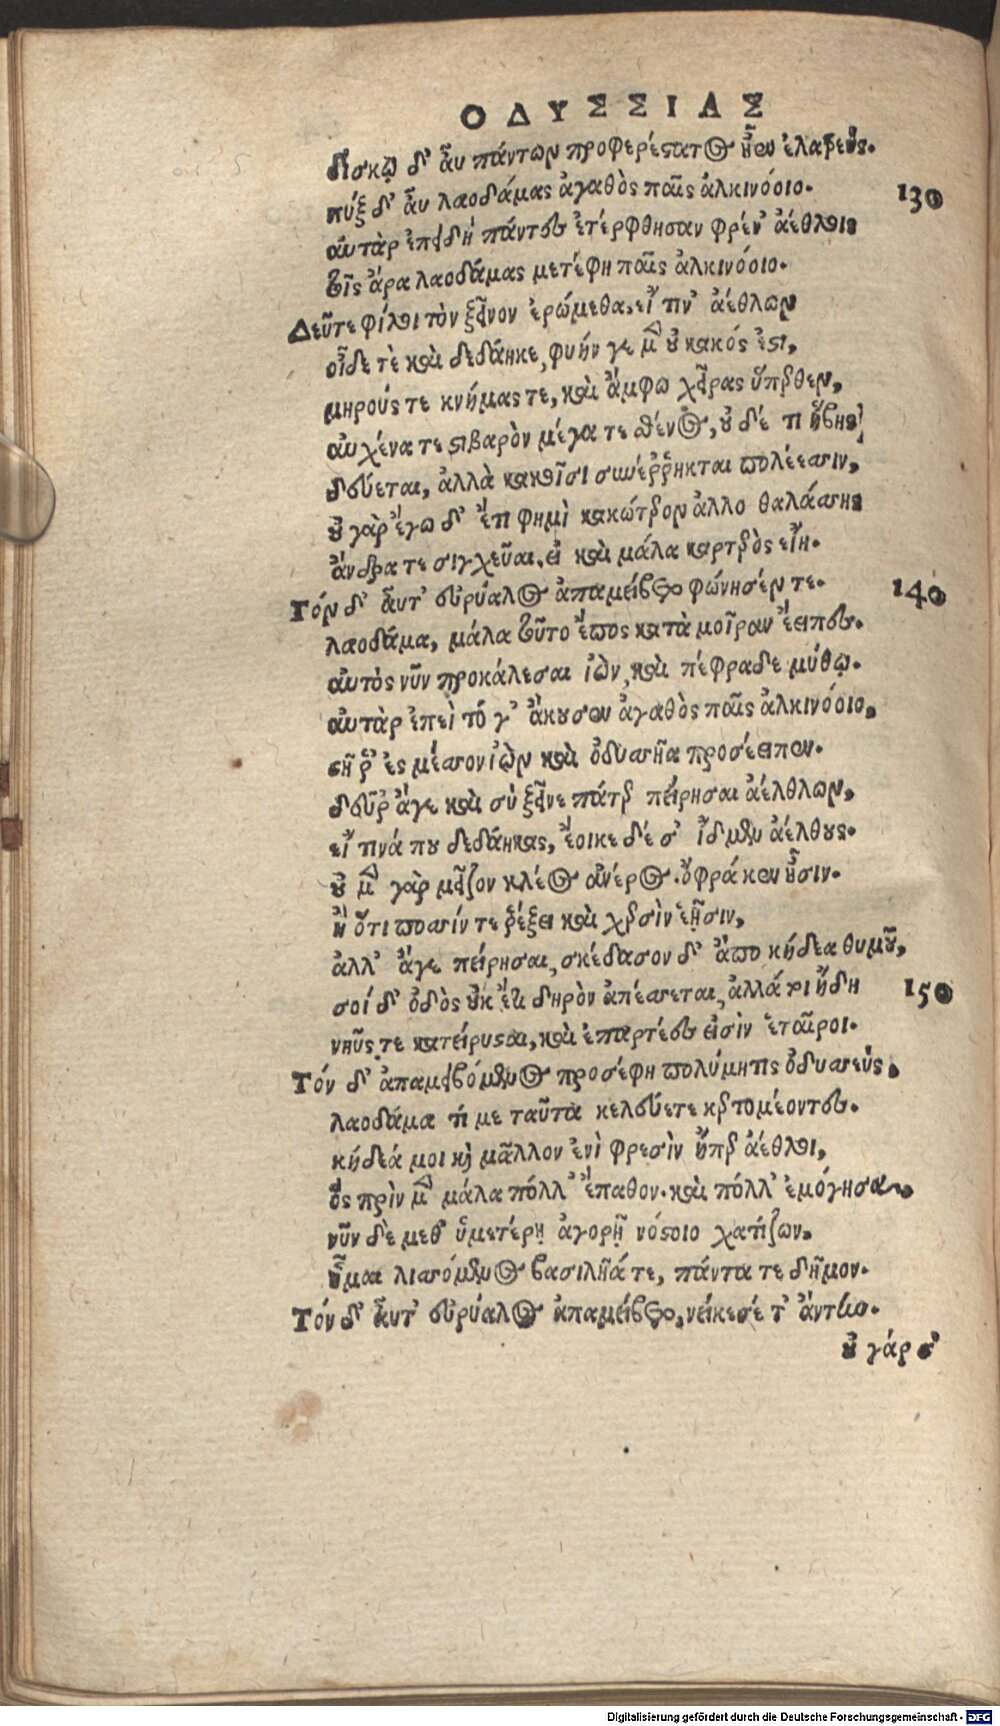 ΟΔΥΣΣΙΑΣ
δίσκῳ δ' αὖ πάντων προφερέστατος ἦεν ἐλατρεύς.
πύξ δ' αὖ λαοδάμας ἀγαθὸς παῖς ἀλκινόοιο.
130
αὐτὰρ ἐπειδὴ πάντες ἐτέρφθησαν φρέν' ἀέθλοις
τοῖς ἄρα λαοδάμας μετέφη παῖς ἀλκινόοιο.
Δεῦτε φίλοι τὸν ξεῖνον ἐρώμεθα, εἴ τιν' ἄεθλον
οἶδε τὲ καὶ δεδάηκε, φυήν γε μὲν οὐ κακός ἐστι,
μηρούς τε κνήμας τε, καὶ ἄμφω χεῖρας ὕπερθεν,
αὐχένα τε στιβαρὸν μέγα τε σθένος, οὐδέ τι ἥβης
δεύεται, ἀλλὰ κακοῖσι συνέῤῥηκται πολέεσσιν,
οὐ γὰρ ἔγω δ' ἔτι φημὶ κακώτερον ἄλλο θαλάσσης
ἄνδρα τε συγχεῦαι, εἰ καὶ μάλα καρτερὸς εἴη.
Τόν δ' αὖτ' εὐρύαλος ἀπαμείβετο φώνησέν τε.
140
λαοδάμα, μάλα τοῦτο ἔπος κατὰ μοῖραν ἔειπες.
αὐτὸς νῦν προκάλεσαι ἰὼν, καὶ πέφραδε μύθῳ.
αὐτὰρ ἐπεὶ τό γ' ἄκουσεν ἀγαθὸς παῖς ἀλκινόοιο,
στῆ ῥ' ἐς μέσσον ἰὼν καὶ ὀδυσσῆα προσέειπεν.
δεῦρ' ἄγε καὶ σὺ ξεῖνε πάτερ πείρησαι ἀέλθλων,
εἴ τινά που δεδάηκας, ἔοικε δέ σ' ἴδμεν ἀέλθους.
οὐ μὲν γὰρ μεῖζον κλέος ἀνέρος ὄφρά κεν ᾖσιν.
ἢ ὅτι ποσσίν τε ῥέξει καὶ χερσὶν ἑῇσιν,
ἀλλ' ἄγε πείρησαι, σκέδασον δ' ἄπο κήδεα θυμοῦ,
σοί δ' ὁδὸς οὐκ ἔτι δηρὸν ἀπέσσεται, ἀλλά τοι ἤδη
150
νηῦς τε κατείρυσαι, καὶ ἐπαρτέες εἰσὶν ἑταῖροι.
Τόν δ' ἀπαμειβόμενος προσέφη πολύμητις ὀδυσσεύς.
λαοδάμα τί με ταῦτα κελεύετε κερτομέοντες.
κήδεά μοι καὶ μᾶλλον ἐνὶ φρεσὶν ἤπερ ἄεθλοι,
ὃς πρὶν μὲν μάλα πόλλ' ἔπαθον. καὶ πόλλ' ἐμόγησα.
νῦν δὲ μεθ' ὑμετέρῃ ἀγορῇ νόστοιο χατίζων,
ἧμαι λισσόμενος βασιλῆά τε, πάντα τε δῆμον.
Τόν δ' αὖτ' εὐρύαλος ἀπαμείβετο, νείκεσέ τ' ἄντην.
οὐ γάρ σ'
Digitalisierung gefördert durch die Deutsche Forschungsgemeinschaft - DFG